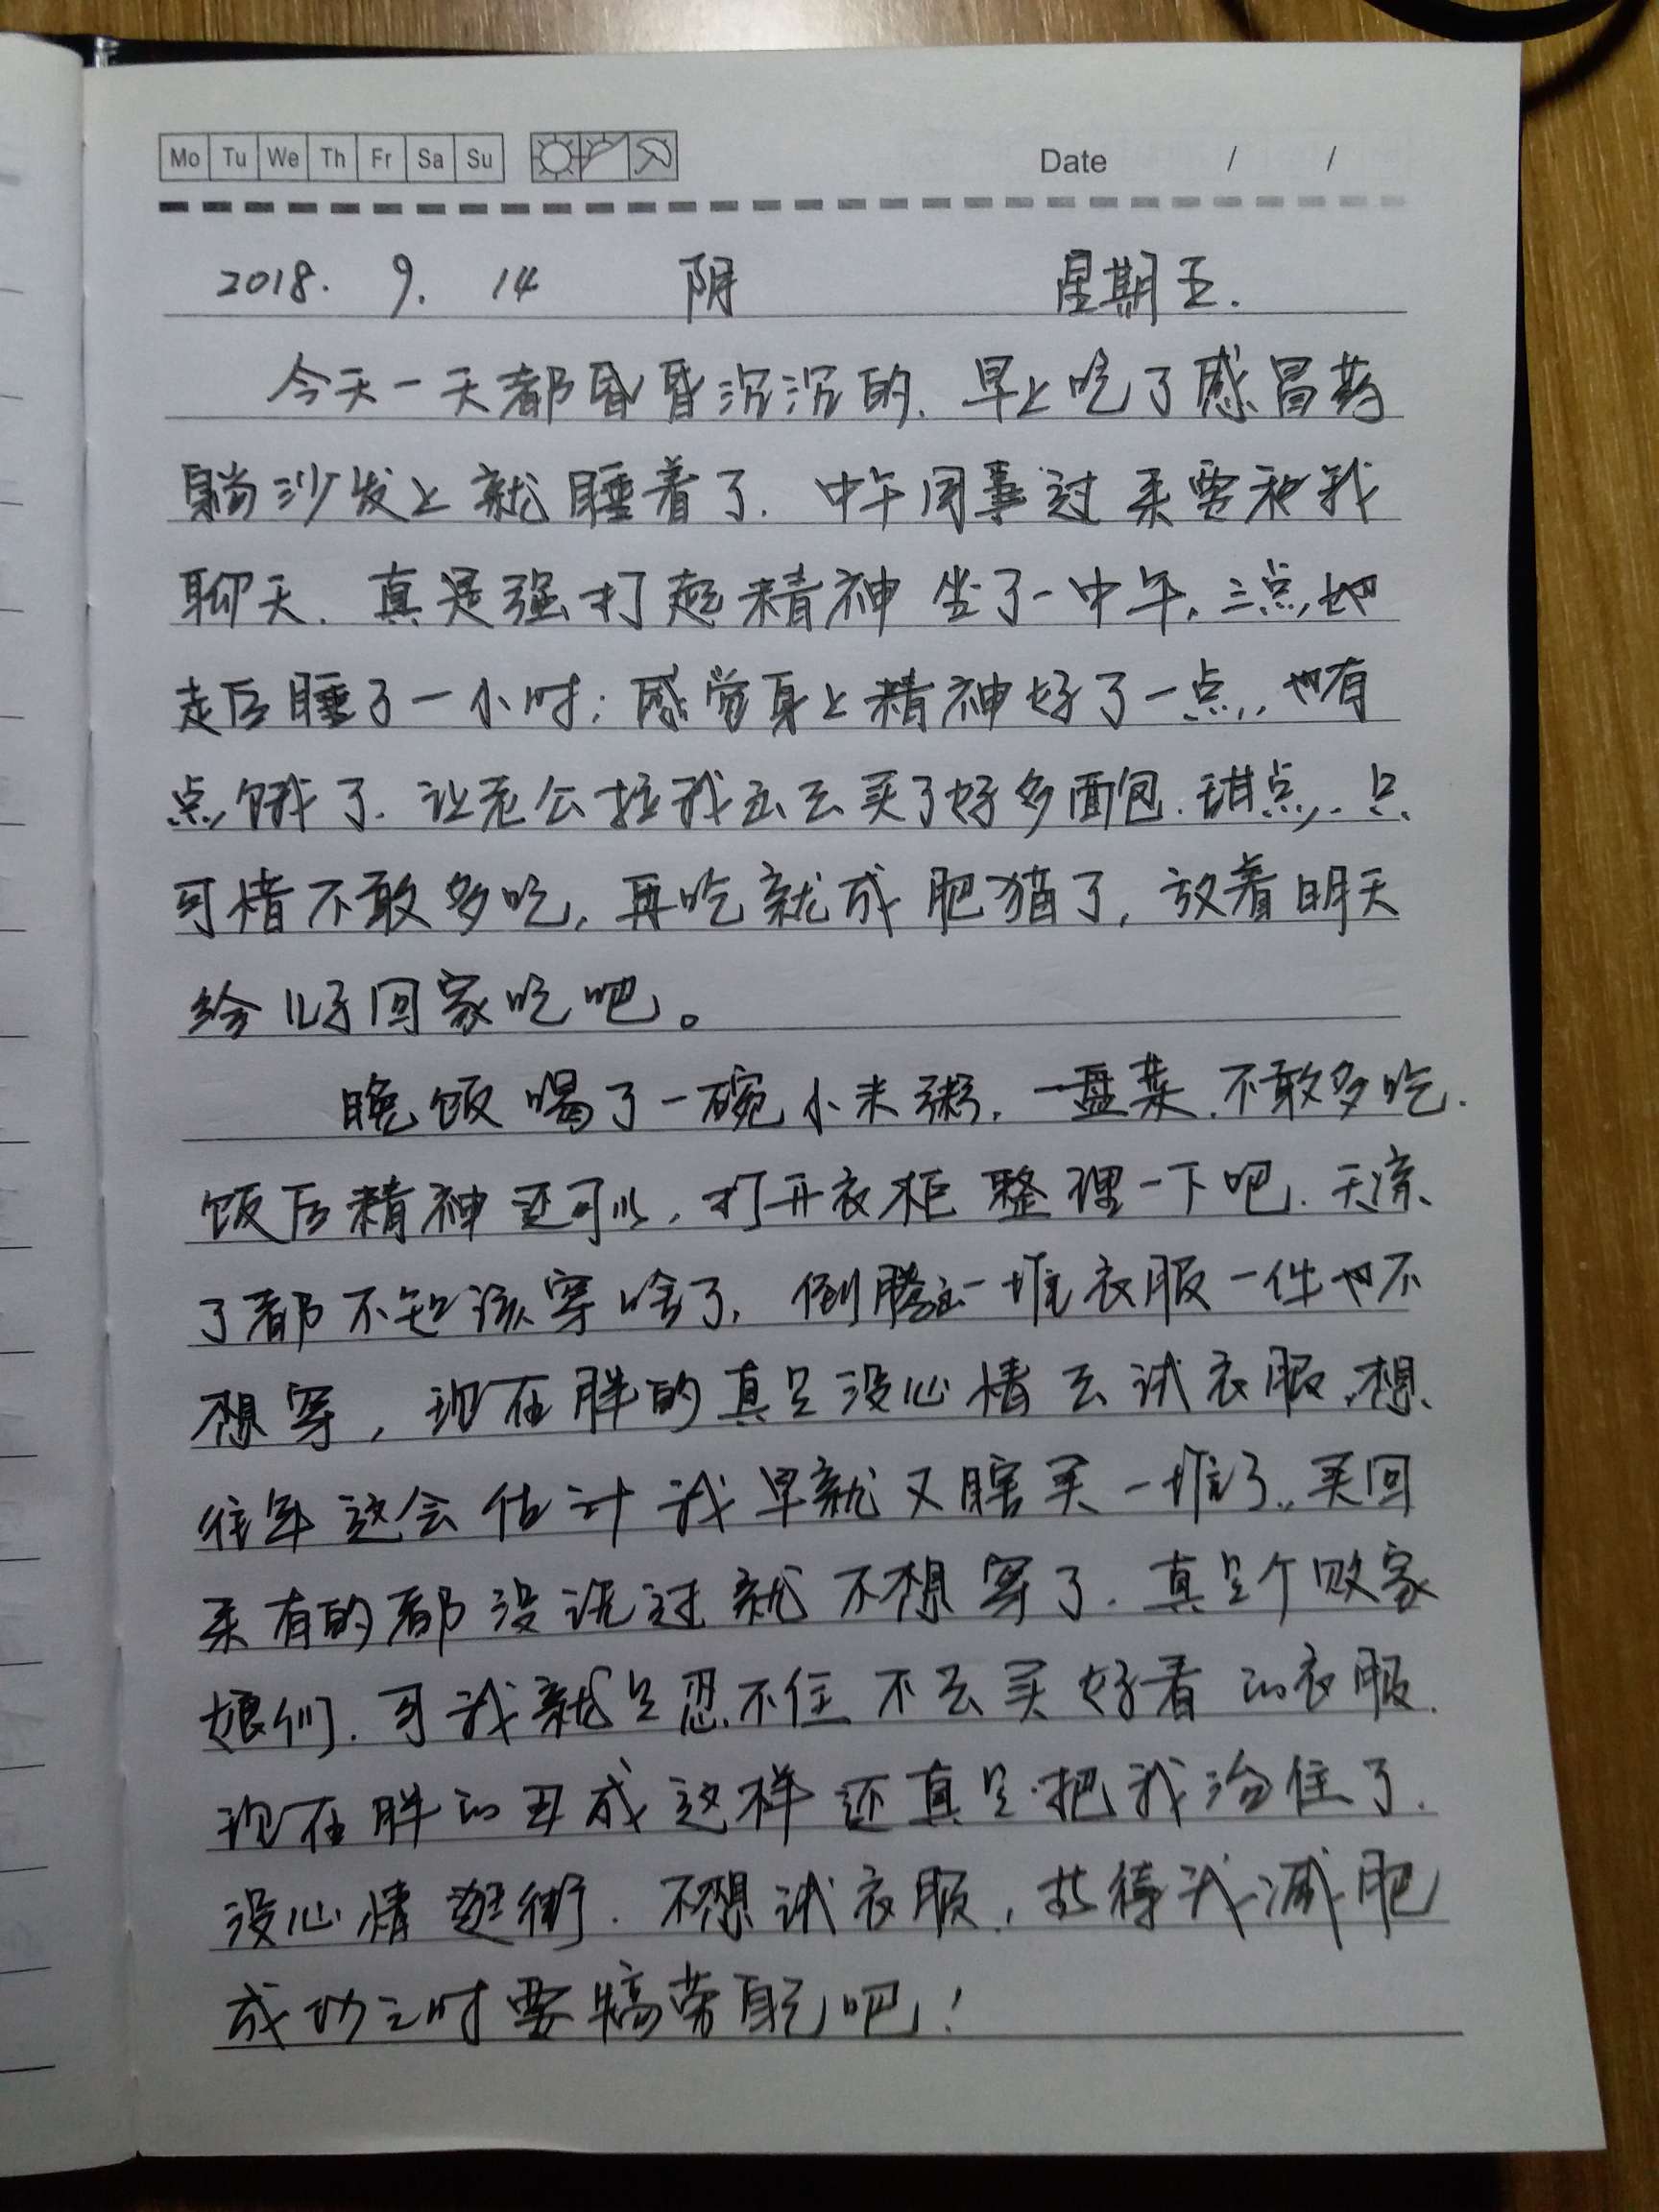 Mo Tu We Th Fr Sa Su Date / /
2018. 9. 14 阴 星期五.
今天一天都昏昏沉沉的. 早上吃了感冒药
躺沙发上就睡着了. 中午同事过来要和我
聊天. 真是强打起精神坐了一中午, 三点她
走后睡了一小时; 感觉身上精神好了一点, 也有
点饿了. 让老公拉我出去买了好多面包. 甜点, 只
可惜不敢多吃, 再吃就成肥猫了, 放着明天
给儿子回家吃吧。
晚饭喝了一碗小米粥, 一盘菜, 不敢多吃.
饭后精神还可以, 打开衣柜整理一下吧. 天凉
了都不知该穿啥了, 倒腾出一堆衣服一件也不
想穿, 现在胖的真是没心情去试衣服, 想
往年这会估计我早就又瞎买一堆了, 买回
来有的都没试过就不想穿了. 真是个败家
娘们. 可我就是忍不住不去买好看的衣服.
现在胖的丑成这样还真是把我治住了.
没心情逛街. 不想试衣服, 待我减肥
成功之时要犒劳自己吧!